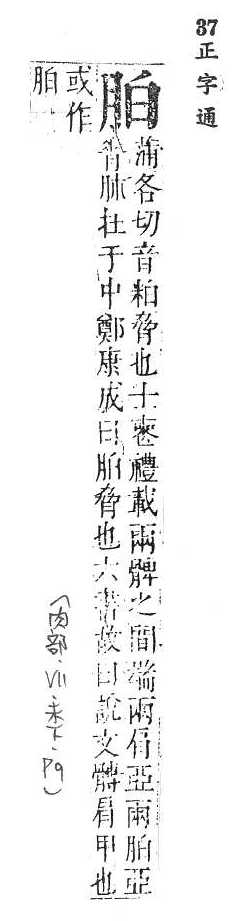 37正字通
胉
蒲各切音粕脅也士喪禮載兩髀之間端兩肩亞兩胉亞
脊肺在于中鄭康成曰胉脅也六書故曰說文髆肩甲也
或作
胉
(肉部·VII 未下·P9)